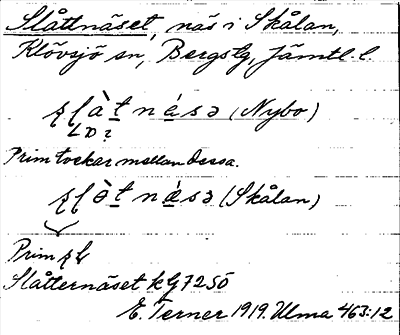 Slåttnäset, näs i Skålan,
Klövsjö sn, Bergs tg, Jämtl. l.
ʂɭàt n ǽsə (Nybo)
L D ?
Prim tvekar mellan dessa.
ʂɭòt n ǽsə (Skålan)
Prim ʂɭ
Slåtternäset kG 7250
E. Terner 1919. Ulma 463:12